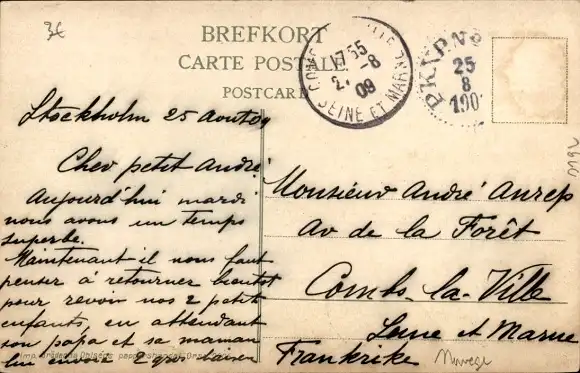 3€
BREFKORT
CARTE POSTALE
POSTCARD
COMBS LA VILLE
17 55
2 -8
09
SEINE ET MARNE
PKXP.N
25
8
190
Stockholm 25 Aout 09
Cher petit André
Aujourd'hui mardi
nous avons un temps
superbe.
Maintenant il nous faut
penser à retourner bientot
pour revoir nos 2 petit
enfants, en attendant
son papa et sa maman
lui envoie 2 gros baiser
Monsieur André Anrep
Av de la Forêt
Combs-la-Ville
Seine et Marne
Frankrike
Imp.